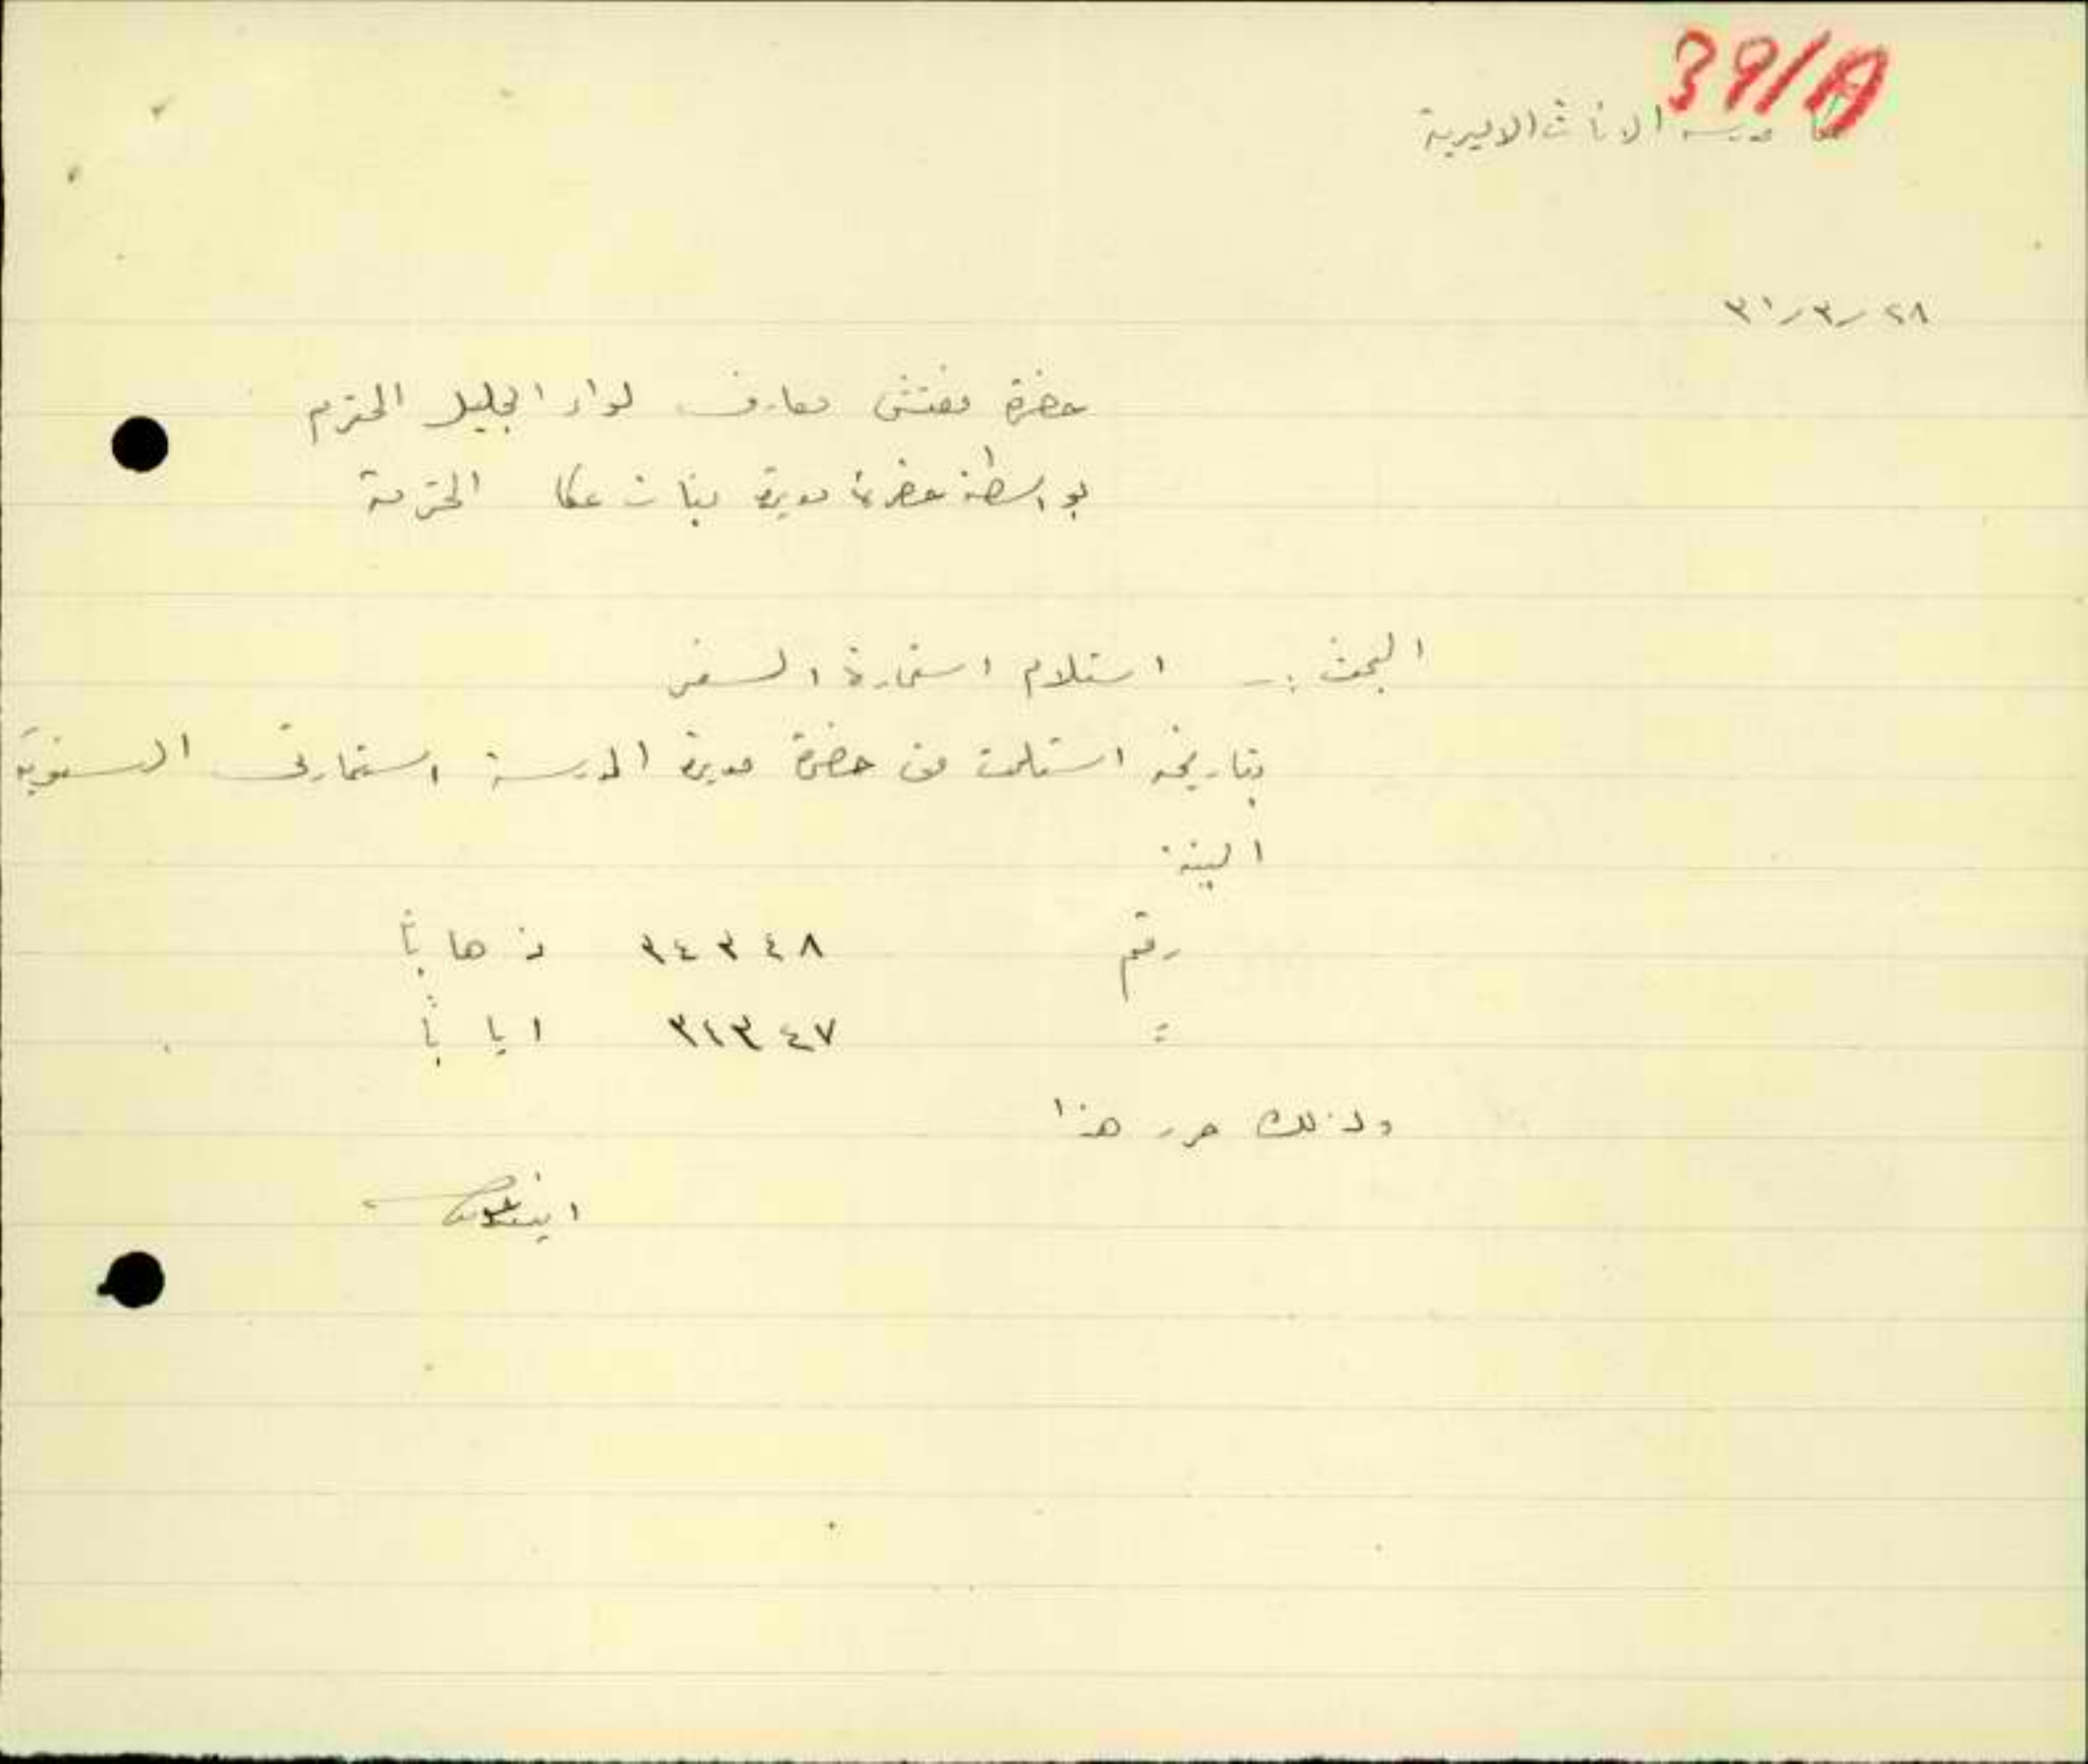 39/A
مدرسة الاناث الاميرية
٢٨/٣/٣١
حضرة مفتش معارف لواء الجليل المحترم
بواسطة حضرة مديرة بنات عكا المحترمة
البحث :- استلام استمارة السفر
بتاريخه استلمت من حضرة مديرة المدرسة استمارتي السنوية
رقم ٣٤٣٤٨ ذهاباً
= ٣٤٣٤٧ اياباً
ولذلك حرر هذا